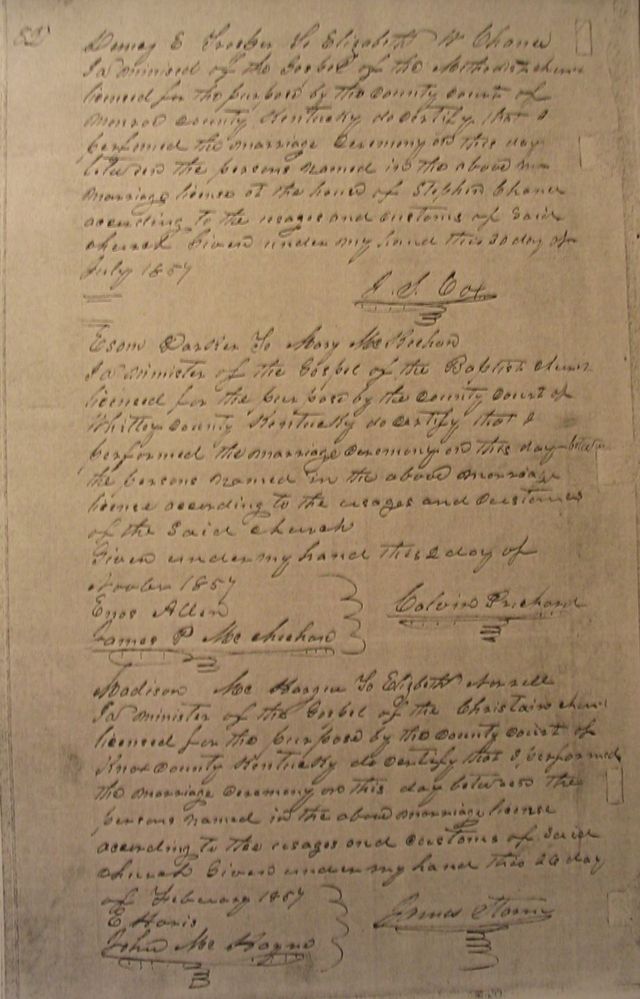 E to Elizabeth W Chance
I a minised of the Gospel of the Methodist
licensed for the purpose by the County Court of
Monroe County Kentucky do certify that I
performed the marriage Ceremony on this day
between the persons named in the above
marriage license at the house of Stephen Chance
according to the usages and customs of said
church Given under my hand this 30 day of
July 1857
J. S. Cox
Esom to Mary
I a minister of the Gospel of the Baptist
licensed for the purpose by the County Court of
Whitley County Kentucky do certify that I
performed the marriage ceremony on this day
the persons named in the above marriage
license according to the usages and customs
of the said church
Given under my hand this 2 day of
1857
Enos Allen
James P
Calvin Prichard
Madison to
I a minister of the Gospel of the
licensed for the purpose by the County Court of
Knox County Kentucky do certify that I performed
the marriage ceremony on this day between the
persons named in the above marriage license
according to the usages and customs of said
church Given under my hand this 26 day
of February 1857
E
John Mc